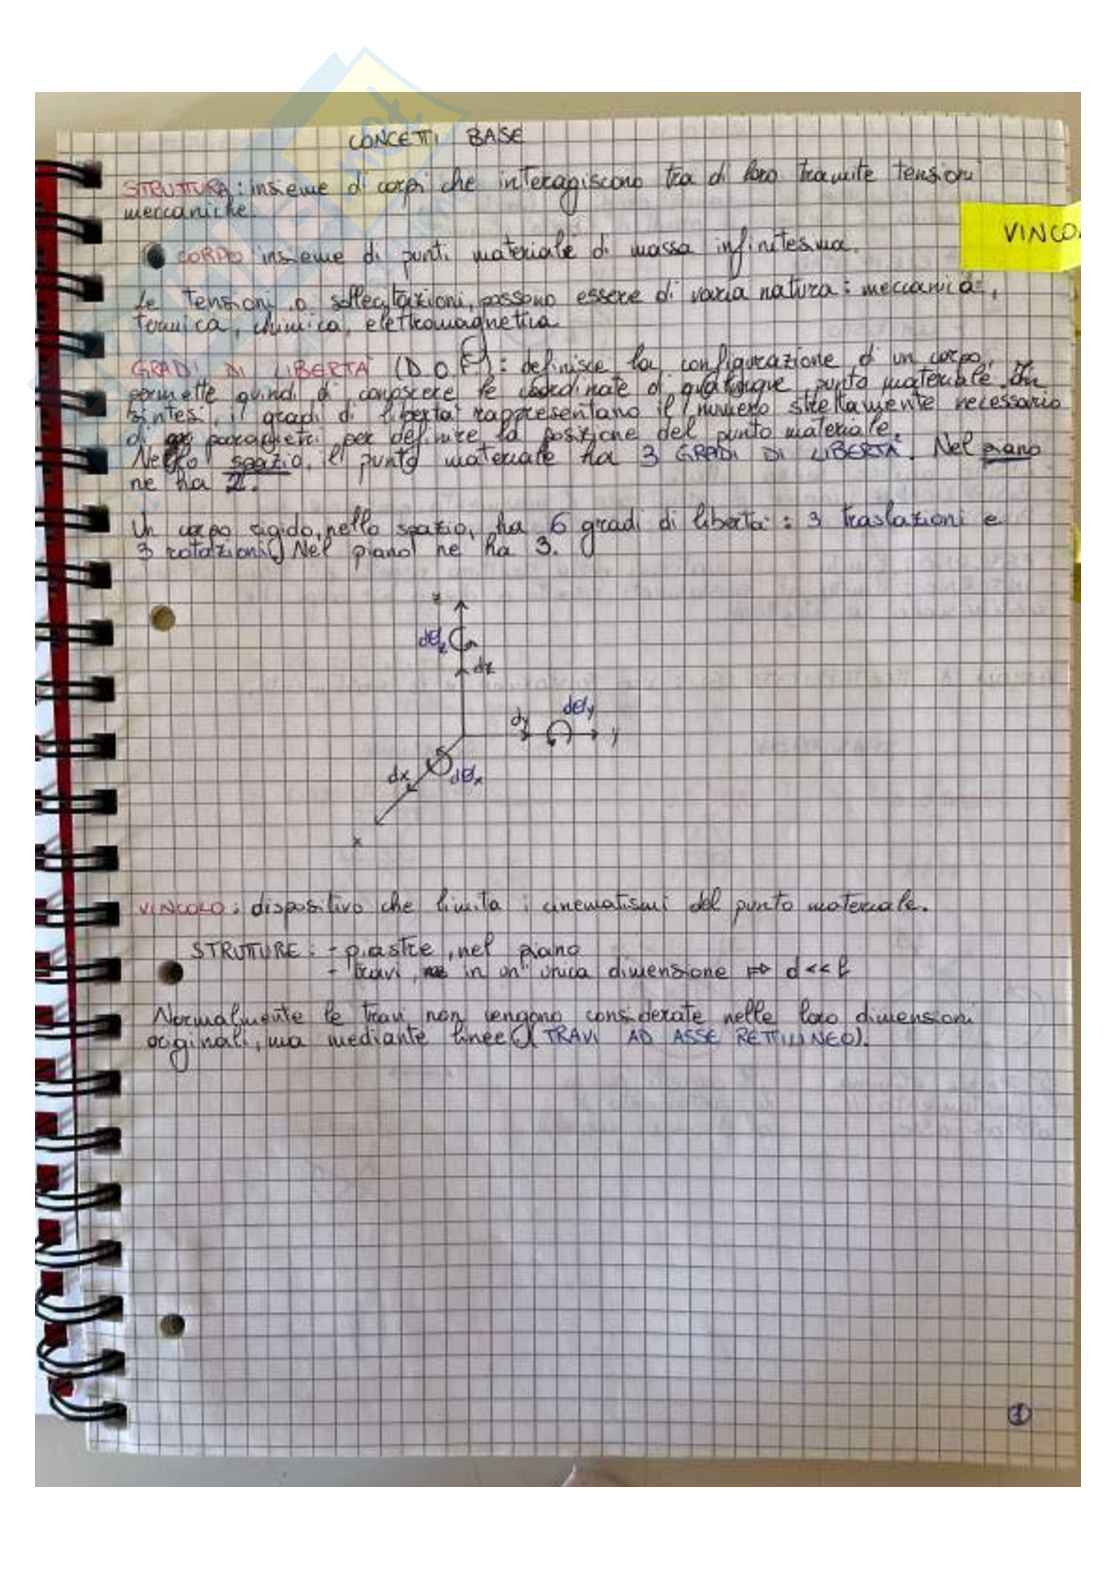 CONCETTI BASE
STRUTTURA: insieme di corpi che interagiscono tra di loro tramite tensioni
meccaniche.
VINCO
CORPO: insieme di punti materiale di massa infinitesima.
Le tensioni o sollecitazioni, possono essere di varia natura: meccanica,
termica, chimica, elettromagnetica
GRADI DI LIBERTÀ (D.O.F): definisce la configurazione di un corpo,
permette quindi di conoscere le coordinate di qualunque punto materiale. In
sintesi, il gradi di libertà rappresentano il numero strettamente necessario
di parametri per definire la posizione del punto materiale.
Nello spazio, il punto materiale ha 3 GRADI DI LIBERTÀ. Nel piano
ne ha 2.
Un corpo rigido, nello spazio, ha 6 gradi di libertà: 3 traslazioni e
3 rotazioni. Nel piano ne ha 3.
z
dθz
dz
dθy
dy
y
dx
dθx
x
VINCOLO: dispositivo che limita i cinematismi del punto materiale.
STRUTTURE: - piastre, nel piano
- travi, in un' unica dimensione => d<<l
Normalmente le travi non vengono considerate nelle loro dimensioni
originali, ma mediante linee (TRAVI AD ASSE RETTILINEO).
1